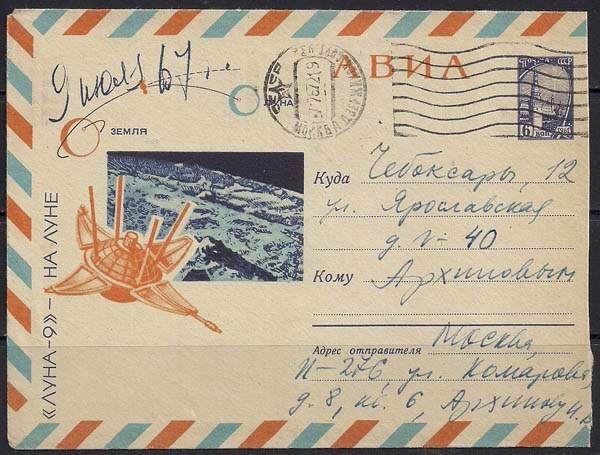 9 июля 67 г.
АВИА
ЛУНА
ЗЕМЛЯ
ПОЧТА СССР
6 КОП
1961
МОСКВА
«ЛУНА-9» – НА ЛУНЕ
Куда Чебоксары, 12
ул. Ярославская
д. V-40
Кому Архиповым
Москва,
Адрес отправителя
И-276, ул. Комарова
д. 8, кв. 6, Архипову